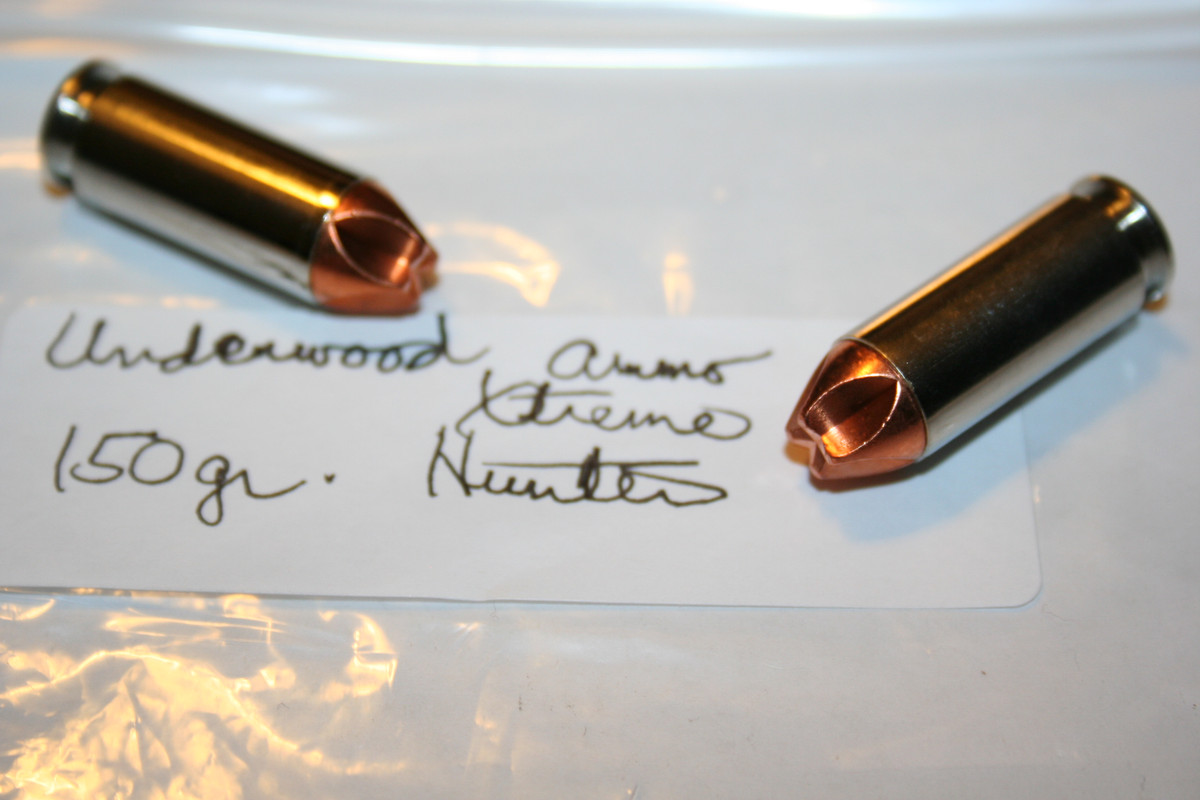 Underwood Ammo
Xtreme
150gr. Hunter